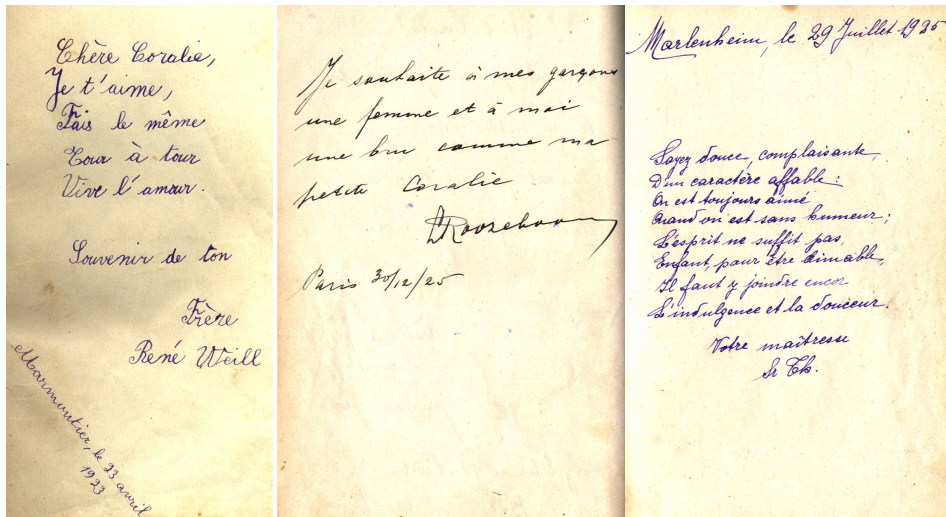 Chère Coralie,
Je t'aime,
Fais le même
Tour à tour
Vive l'amour.
Souvenir de ton
Frère
René Weill
Marmoutier, le 23 avril
1923
Je souhaite à mes garçons
une femme et à moi
une bru comme ma
petite Coralie
Roozeboom
Paris 30/12/25
Marlenheim, le 29 Juillet 1925
Soyez douce, complaisante,
D'un caractère affable :
On est toujours aimé
Quand on est sans humeur ;
L'esprit ne suffit pas,
Enfant, pour être aimable,
Il faut y joindre encor
L'indulgence et la douceur.
Votre maîtresse
Sr Th.